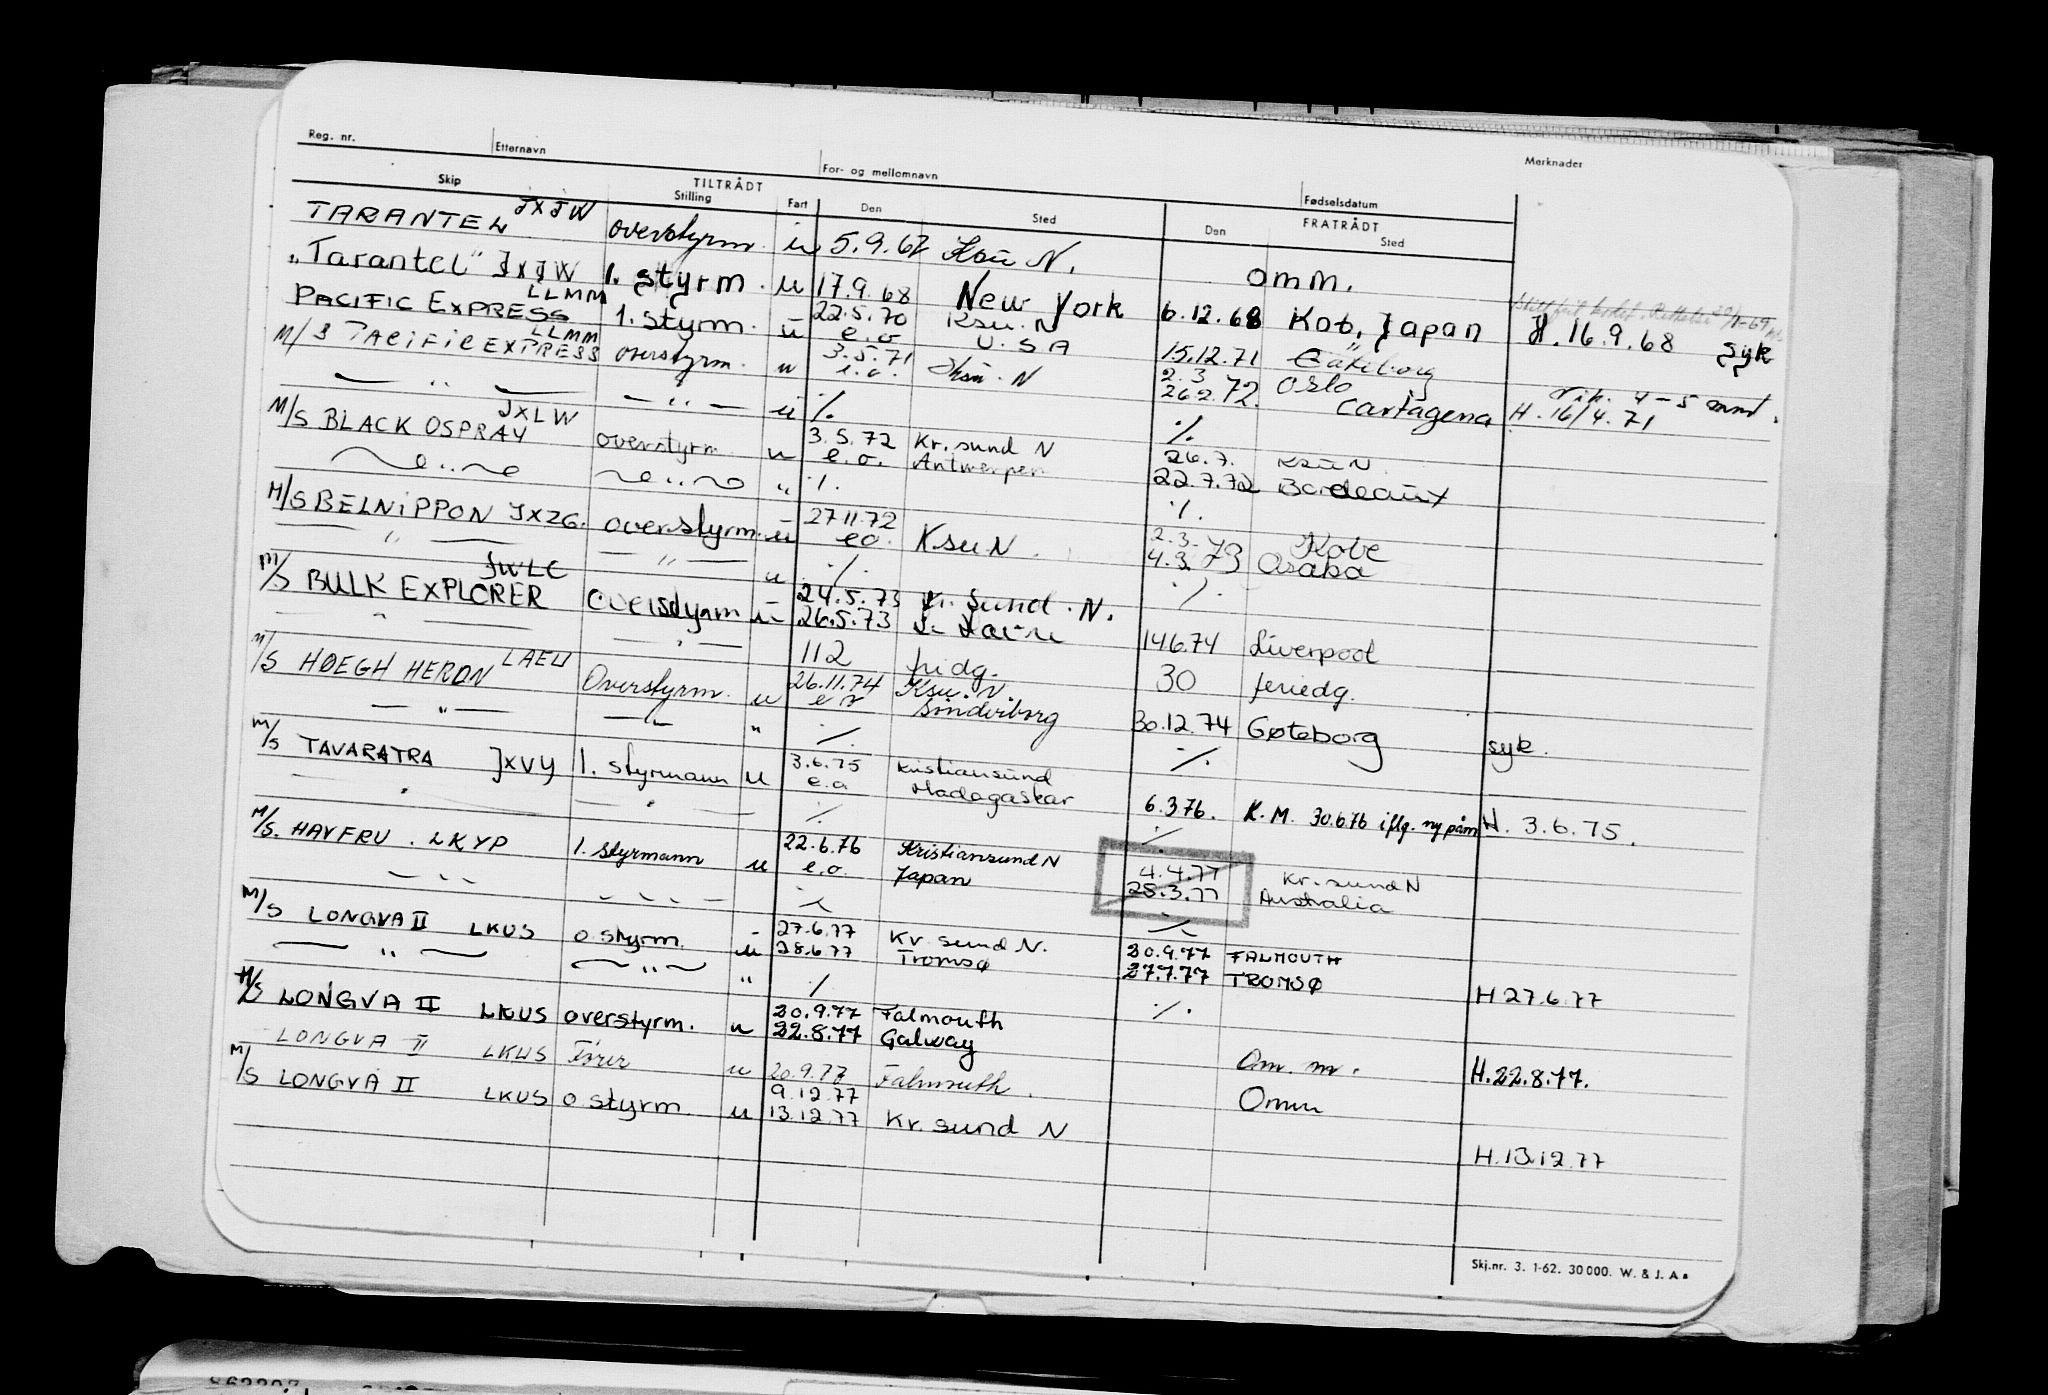 Reg. nr. Etternavn For- og mellomnavn Fødselsdatum Merknader
TILTRÅDT FRATRÅDT
Skip Stilling Fart Den Sted Den Sted
TARANTEL JXJW overstyrm. u 5.9.67 Ksu N. omm.
"Tarantel" JXJW 1. styrm. u 17.9.68 New York 6.12.68 Kobe, Japan H. 16.9.68 syk
PACIFIC EXPRESS LLMM 1. styrm. u 22.5.70 Ksu. N
e.o U.S.A 15.12.71 Gøteborg
M/S PACIFIC EXPRESS LLMM overstyrm. u 3.5.71 Ksu. N 2.3 Oslo
e.o. 26.2.72. Cartagena H. 16/4.71
— " — — " — u ./. ./.
M/S BLACK OSPRAY JXLW overstyrm. u 3.5.72 Kr.sund N 26.7. Ksu N.
e.o. Antwerpen 22.7.72 Bordeaux
— " — — " — " ./. ./.
M/S BELNIPPON JXZG. overstyrm. u 27.11.72 Ksu N. 2.3. Kobe
e.o. 4.3.73 Osaka
— " — — " — u ./. ./.
M/S BULK EXPLORER JWLC overstyrm u 24.5.73 Kr. Sund. N.
26.5.73 14.6.74 Liverpool
— " — — " — 112 fridg. 30 feriedg.
M/S HØEGH HERON LAEW Overstyrm. u 26.11.74 Ksu. N.
30.12.74 Gøteborg syk.
— " — — " — " ./. ./.
M/S TAVARATRA JXVY 1. styrmann u 3.6.75 Kristiansund
e.o Madagaskar 6.3.76. K.M. 30.6.76 iflg. ny påm H. 3.6.75.
— " — — " — ./. ./.
M/S. HAVFRU. LKYP 1. styrmann u 22.6.76 Kristiansund N 4.4.77 Kr.sund N
e.o. Japan 28.3.77 Australia
— " — — " — ./. ./.
M/S LONGVA II LKUS o.styrm. u 27.6.77 Kr.sund N. 20.9.77 FALMOUTH
28.6.77 Tromsø 27.7.77 TROMSØ H 27.6.77
— " — — " — " ./. ./.
M/S LONGVA II LKUS overstyrm. u 20.9.77 Falmouth
22.8.77 Galway Om. m. H. 22.8.77.
LONGVA II LKUS Fører u 20.9.77 Falmouth. Omm
M/S LONGVA II LKUS o.styrm. u 9.12.77
13.12.77 Kr.sund N H. 13.12.77
Skj.nr. 3. 1-62. 30 000. W. & J. A.